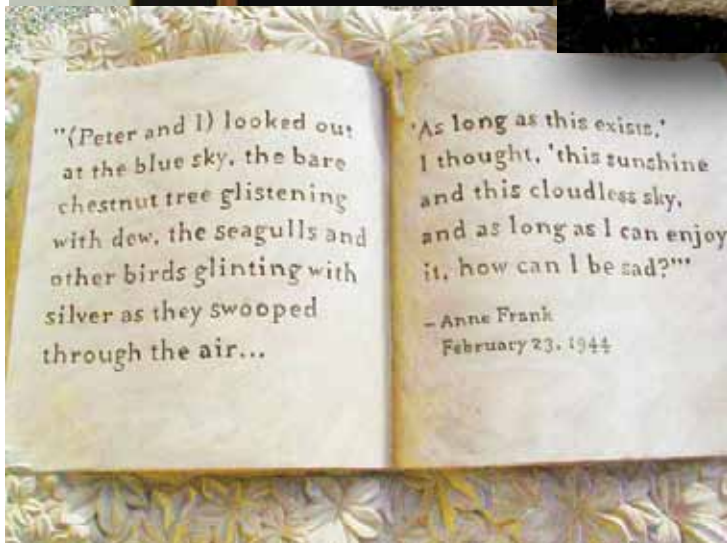 "(Peter and I) looked out
at the blue sky, the bare
chestnut tree glistening
with dew, the seagulls and
other birds glinting with
silver as they swooped
through the air...
'As long as this exists,'
I thought, 'this sunshine
and this cloudless sky,
and as long as I can enjoy
it, how can I be sad?'"
– Anne Frank
February 23, 1944